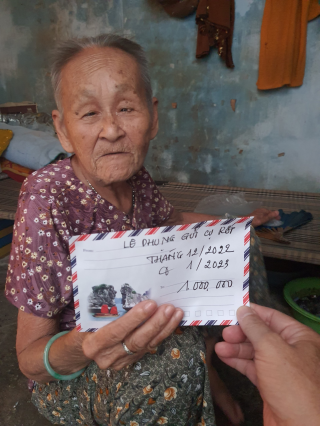 LÊ PHỤNG GỬI CỤ RỚT
THÁNG 12/2022
1/2023
1 000, 000